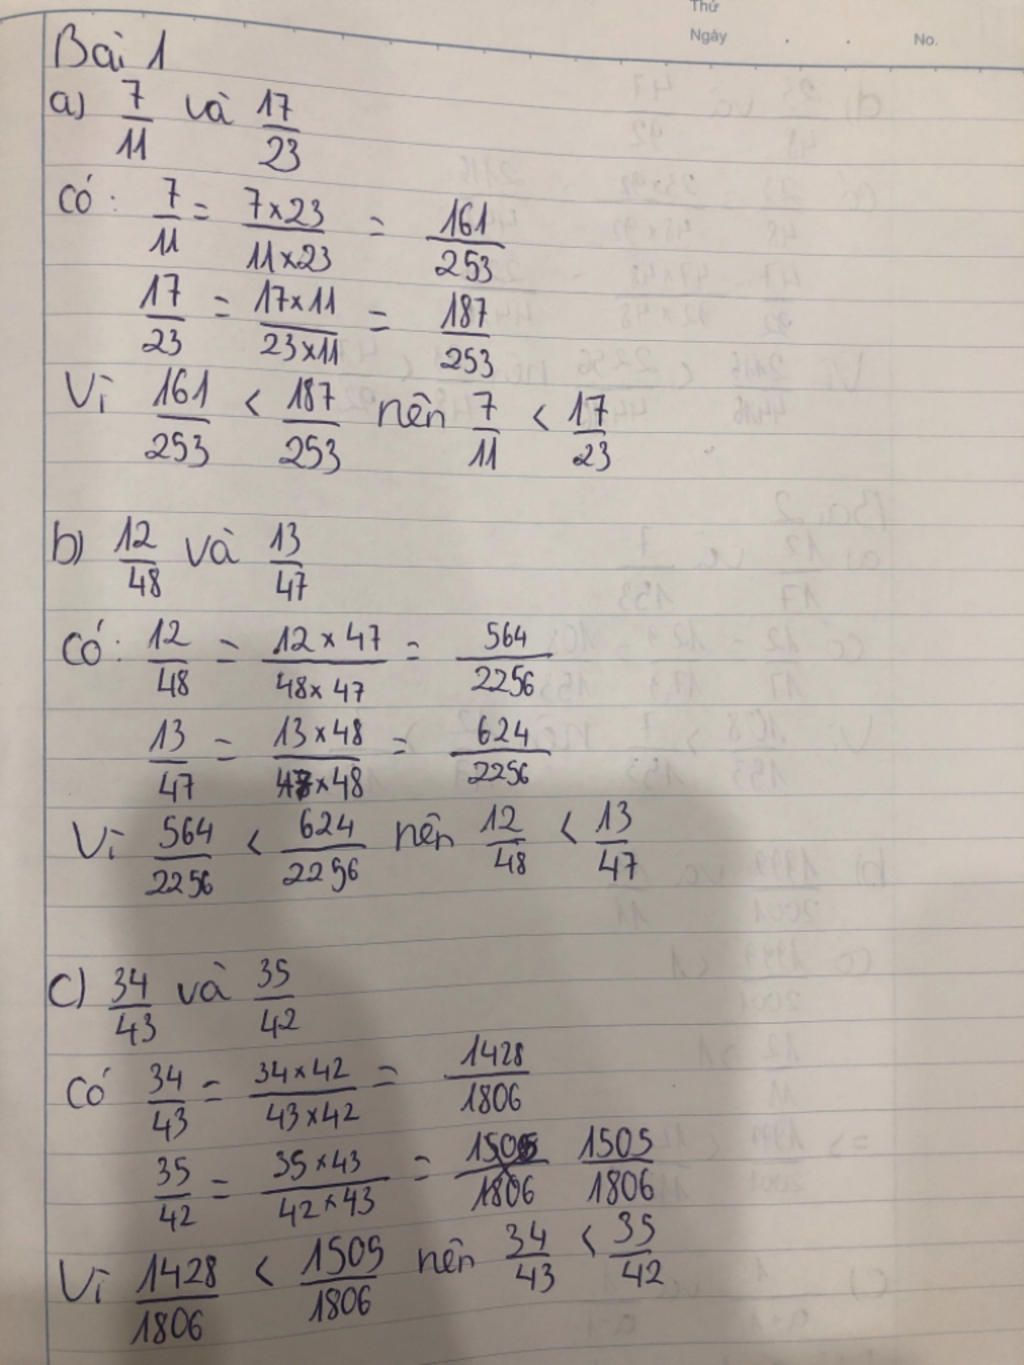 Thứ
Ngày . . No.
Bài 1
a) 7/11 và 17/23
Có: 7/11 = 7×23/11×23 = 161/253
17/23 = 17×11/23×11 = 187/253
Vì 161/253 < 187/253 nên 7/11 < 17/23
b) 12/48 và 13/47
Có: 12/48 = 12×47/48×47 = 564/2256
13/47 = 13×48/47×48 = 624/2256
Vì 564/2256 < 624/2256 nên 12/48 < 13/47
c) 34/43 và 35/42
Có 34/43 = 34×42/43×42 = 1428/1806
35/42 = 35×43/42×43 = 1505/1806 1505/1806
Vì 1428/1806 < 1505/1806 nên 34/43 < 35/42